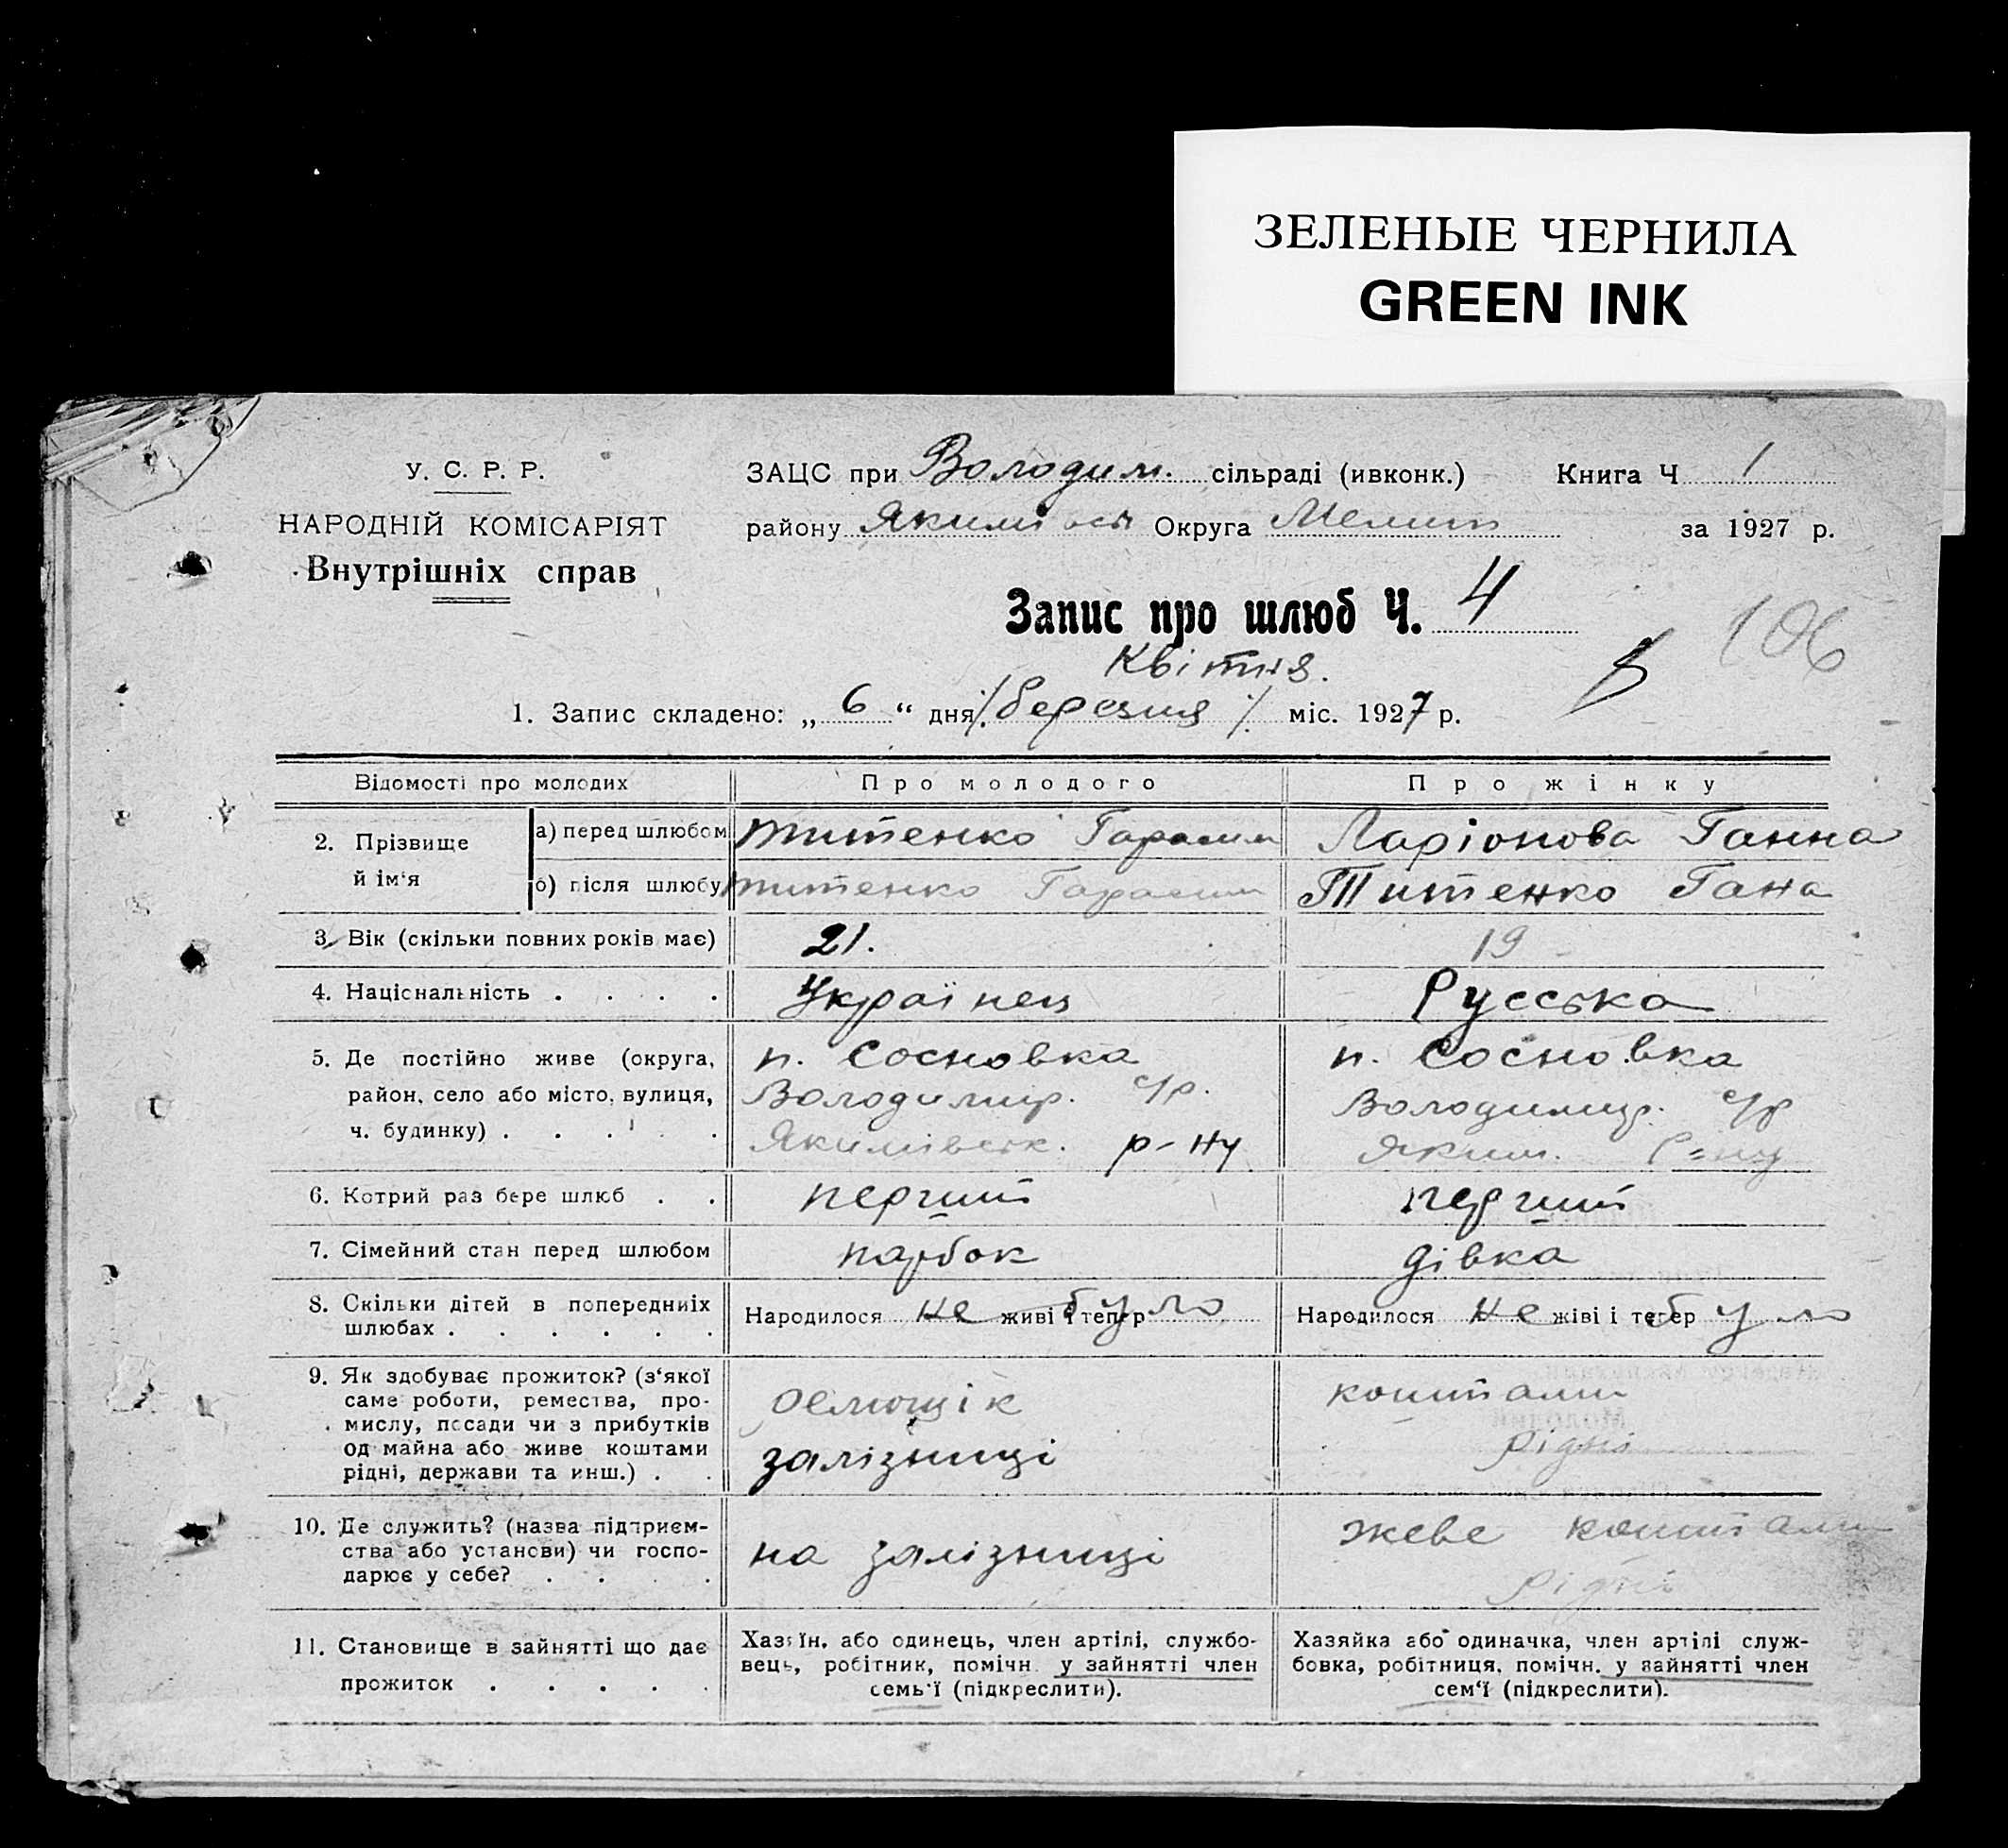 ЗЕЛЕНЫЕ ЧЕРНИЛА
GREEN INK
У. С. Р. Р.
НАРОДНІЙ КОМІСАРІЯТ
Внутрішніх справ
ЗАЦС при Володим. сільраді (ивконк.) Книга Ч 1
району Якимівськ Округа Мелит за 1927 р.
Запис про шлюб Ч. 4
106
Квітня.
1. Запис складено: „ 6 “ дня /березня/ міс. 1927 р.
Відомості про молодих Про молодого Про жінку
2. Прізвище й ім‘я
а) перед шлюбом Титенко Гарасим Ларіонова Ганна
б) після шлюбу Титенко Гарасим Титенко Гана
3. Вік (скільки повних років має) 21. 19
4. Національність . . . . Українец Русська
5. Де постійно живе (округа, п. Сосновка п. Сосновка
район, село або місто, вулиця, Володимир. с/р. Володимир. с/р
ч. будинку) . . . . . Якимівськ. р-ну Яким. Р-ну
6. Котрий раз бере шлюб . . перший перший
7. Сімейний стан перед шлюбом парбок дівка
8. Скільки дітей в попередниіх
шлюбах . . . . . . Народилося не живі і тепер було Народилося не жіві і тепер було
9. Як здобуває прожиток? (з‘якої
саме роботи, ремества, про-
мислу, посади чи з прибутків
од майна або живе коштами
рідні, держави та инш.) . .
залізниці
коштами
рідні
10. Де служить? (назва підприєм-
ства або установи) чи госпо-
дарює у себе? . . . .
на залізниці
жеве коштами
рідні
11. Становище в зайнятті що дає
прожиток . . . . .
Хазяїн, або одинець, член артілі, службо-
вець, робітник, помічн. у зайнятті член
семь‘ї (підкреслити).
Хазяйка або одиначка, член артілі служ-
бовка, робітниця, помічн. у зайнятті член
сем‘ї (підкреслити).